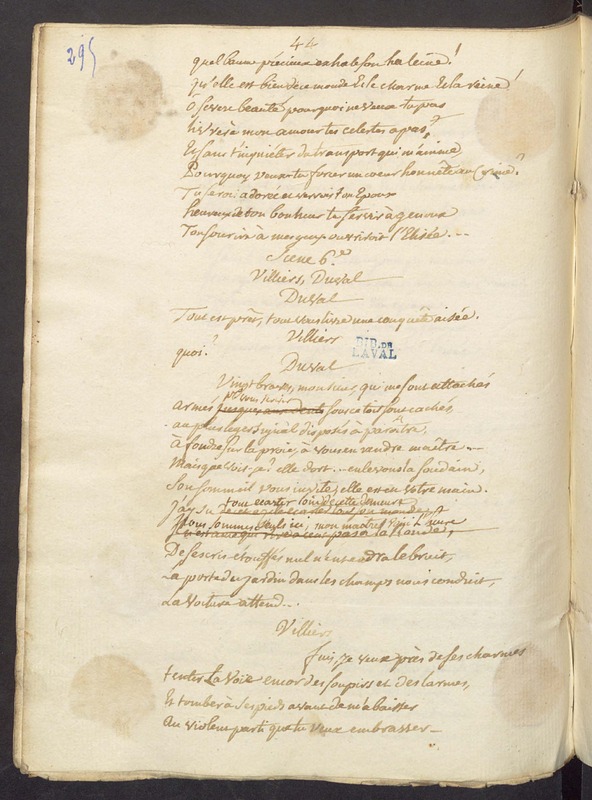 44
295
quel baume précieux exhale son haleine!
qu'elle est bien de ce monde et le charme et la reine!
ô fevere beauté, pourquoi ne veux tu pas
livrer à mon amour tes celestes apas?
Et sans t'inquiéter du transport qui m'anime
Pourquoy veux tu forcer un coeur honnête au crime?
Tu serois adorée et verrois ton Epoux
heureux de ton bonheur te servir à genoux
Ton sourire à mes yeux ouvriroit l'Elisée...
Scene 6.e
Villiers, Duval
Duval
Tout est prêt, tout vous livre une conquête aisée.
Villiers
quoi?
BIB. DE
LAVAL
Duval
Vingt braves, monsieur, qui me sont attachés
pr vous servir
armés sous ce toit sont cachés,
au plus leger signal disposés à paraître,
à fondre sur la proie, à vous en rendre maître...
Mais que vois-je? elle dort... enlevons la soudain,
Son sommeil vous invite; elle est en votre main.
tout ecarter loin de cette demeure
J'ay su
nous sommes seuls ici, mon maître
De ses cris étouffés nul n'entendra le bruit,
La porte du jardin dans les champs nous conduit,
La voiture attend...
Villiers
fuis, je veux près de ses charmes
tenter la voie encor des soupirs et des larmes,
Et tomber à ses pieds avant de m'abaisser
Au violent parti que tu veux embrasser—